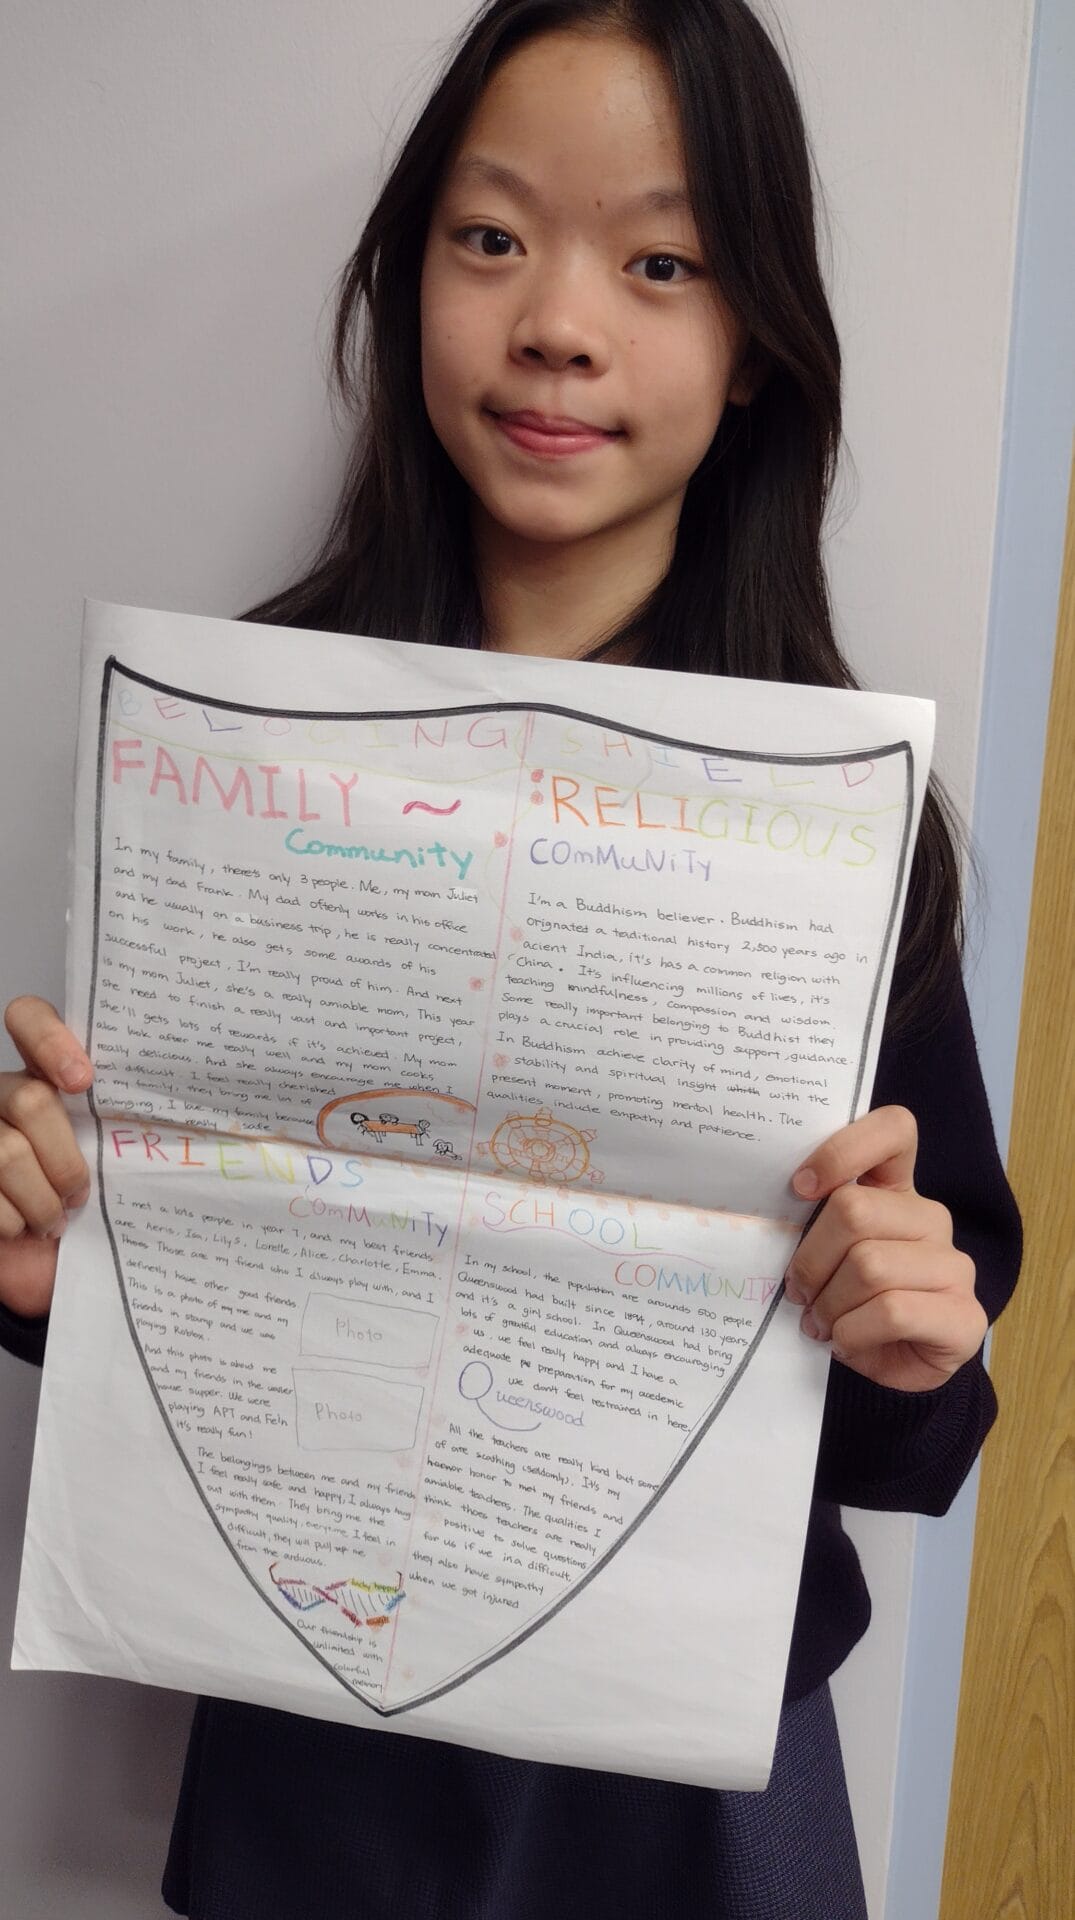 BELOGING SHIELD
FAMILY ~
Community
In my family, there's only 3 people. Me, my mom Juliet
and my dad Frank. My dad oftenly works in his office
and he usually on a business trip, he is really concentrated
on his work, he also gets some awards of his
successful project, I'm really proud of him. And next
is my mom Juliet, she's a really amiable mom, This year
she need to finish a really vast and important project,
she'll gets lots of rewards if it's achieved. My mom
also look after me really well and my mom cooks
really delicious. And she always encourage me when I
feel difficult. I feel really cherished
in my family, they bring me lot of
belonging, I love my family because
really safe
: RELIGIOUS
COmMuNiTy
I'm a Buddhism believer. Buddhism had
orignated a traditional history 2,500 years ago in
acient India, it's has a common religion with
China. It's influencing millions of lives, it's
teaching mindfulness, compassion and wisdom.
Some really important belonging to Buddhist they
plays a crucial role in providing support, guidance.
In Buddhism achieve clarity of mind, emotional
stability and spiritual insight with with the
present moment, promoting mental health. The
qualities include empathy and patience.
FRIENDS
COmMuNiTy
I met a lots people in year 7, and my best friends
are Aeris, Isa, Lily S, Lorelle, Alice, Charlotte, Emma.
Those Those are my friend who I always play with, and I
definetly have other good friends.
This is a photo of my me and my
friends in stamp and we was
playing Roblox.
Photo
And this photo is about me
and my friends in the
have supper. We were
playing APT and Feln
it's really fun!
Photo
The belongings between me and my friends
I feel really safe and happy, I always hug
out with them. They bring me the
sympathy quality, everytime I feel in
difficult, they will pull up me
from the arduous.
lucky happy
Our friendship is
unlimited with
colorful
memory
SCHOOL
COMMUNITY
In my school, the population are arounds 500 people
Queenswood had built since 1894, around 130 years
and it's a girl school. In Queenswood had bring
lots of greatful education and always encouraging
us. we feel really happy and I have a
adequate pe preparation for my acedemic
we don't feel restrained in here.
Queenswood
All the teachers are really kind but some
of are scathing (seldomly). It's my
honor to met my friends and
amiable teachers. The qualities I
think thoes teachers are really
positive to solve questions
for us if we in a difficult,
they also have sympathy
when we got injured